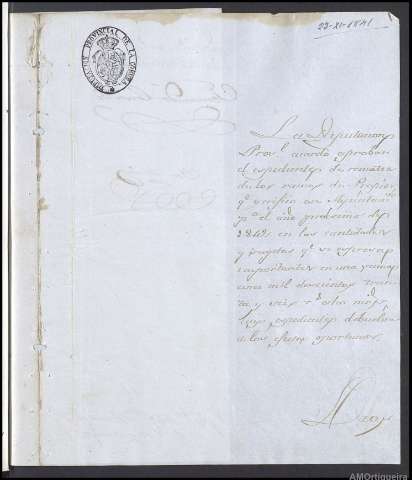 22-XI-1841
DIPUTACION PROVINCIAL DE LA CORUÑA
La Diputacion
Prov.l acordó aprobar
el espediente de remates
de los ramos de Propios
q.e verificó ese Ayuntam.to
p.a el año proximo de
1842 en las cantidades
y sugetos q.e se espresan
importantes en una suma
mil doscientos trein
ta y seis r.s ocho mrs,
cuyo espediente debuelvo
a los efectos oportunos.
AMOrtigueira